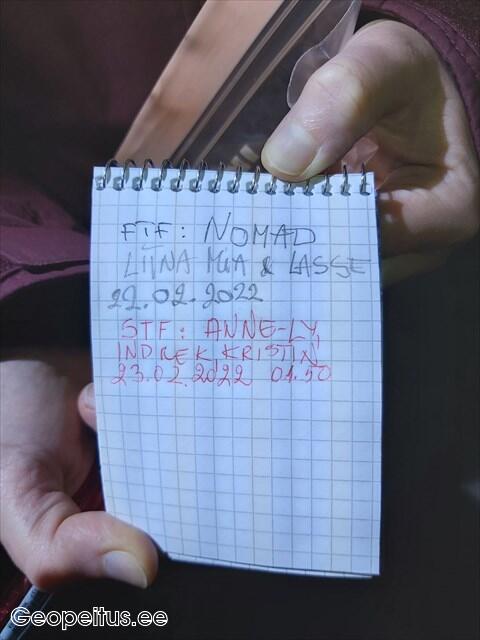 FTF: NOMAD
LIINA MIIA & LASSE
22.02.2022
STF: ANNE-LY,
INDREK, KRISTIN
23.02.2022 01.50
Geopeitus.ee